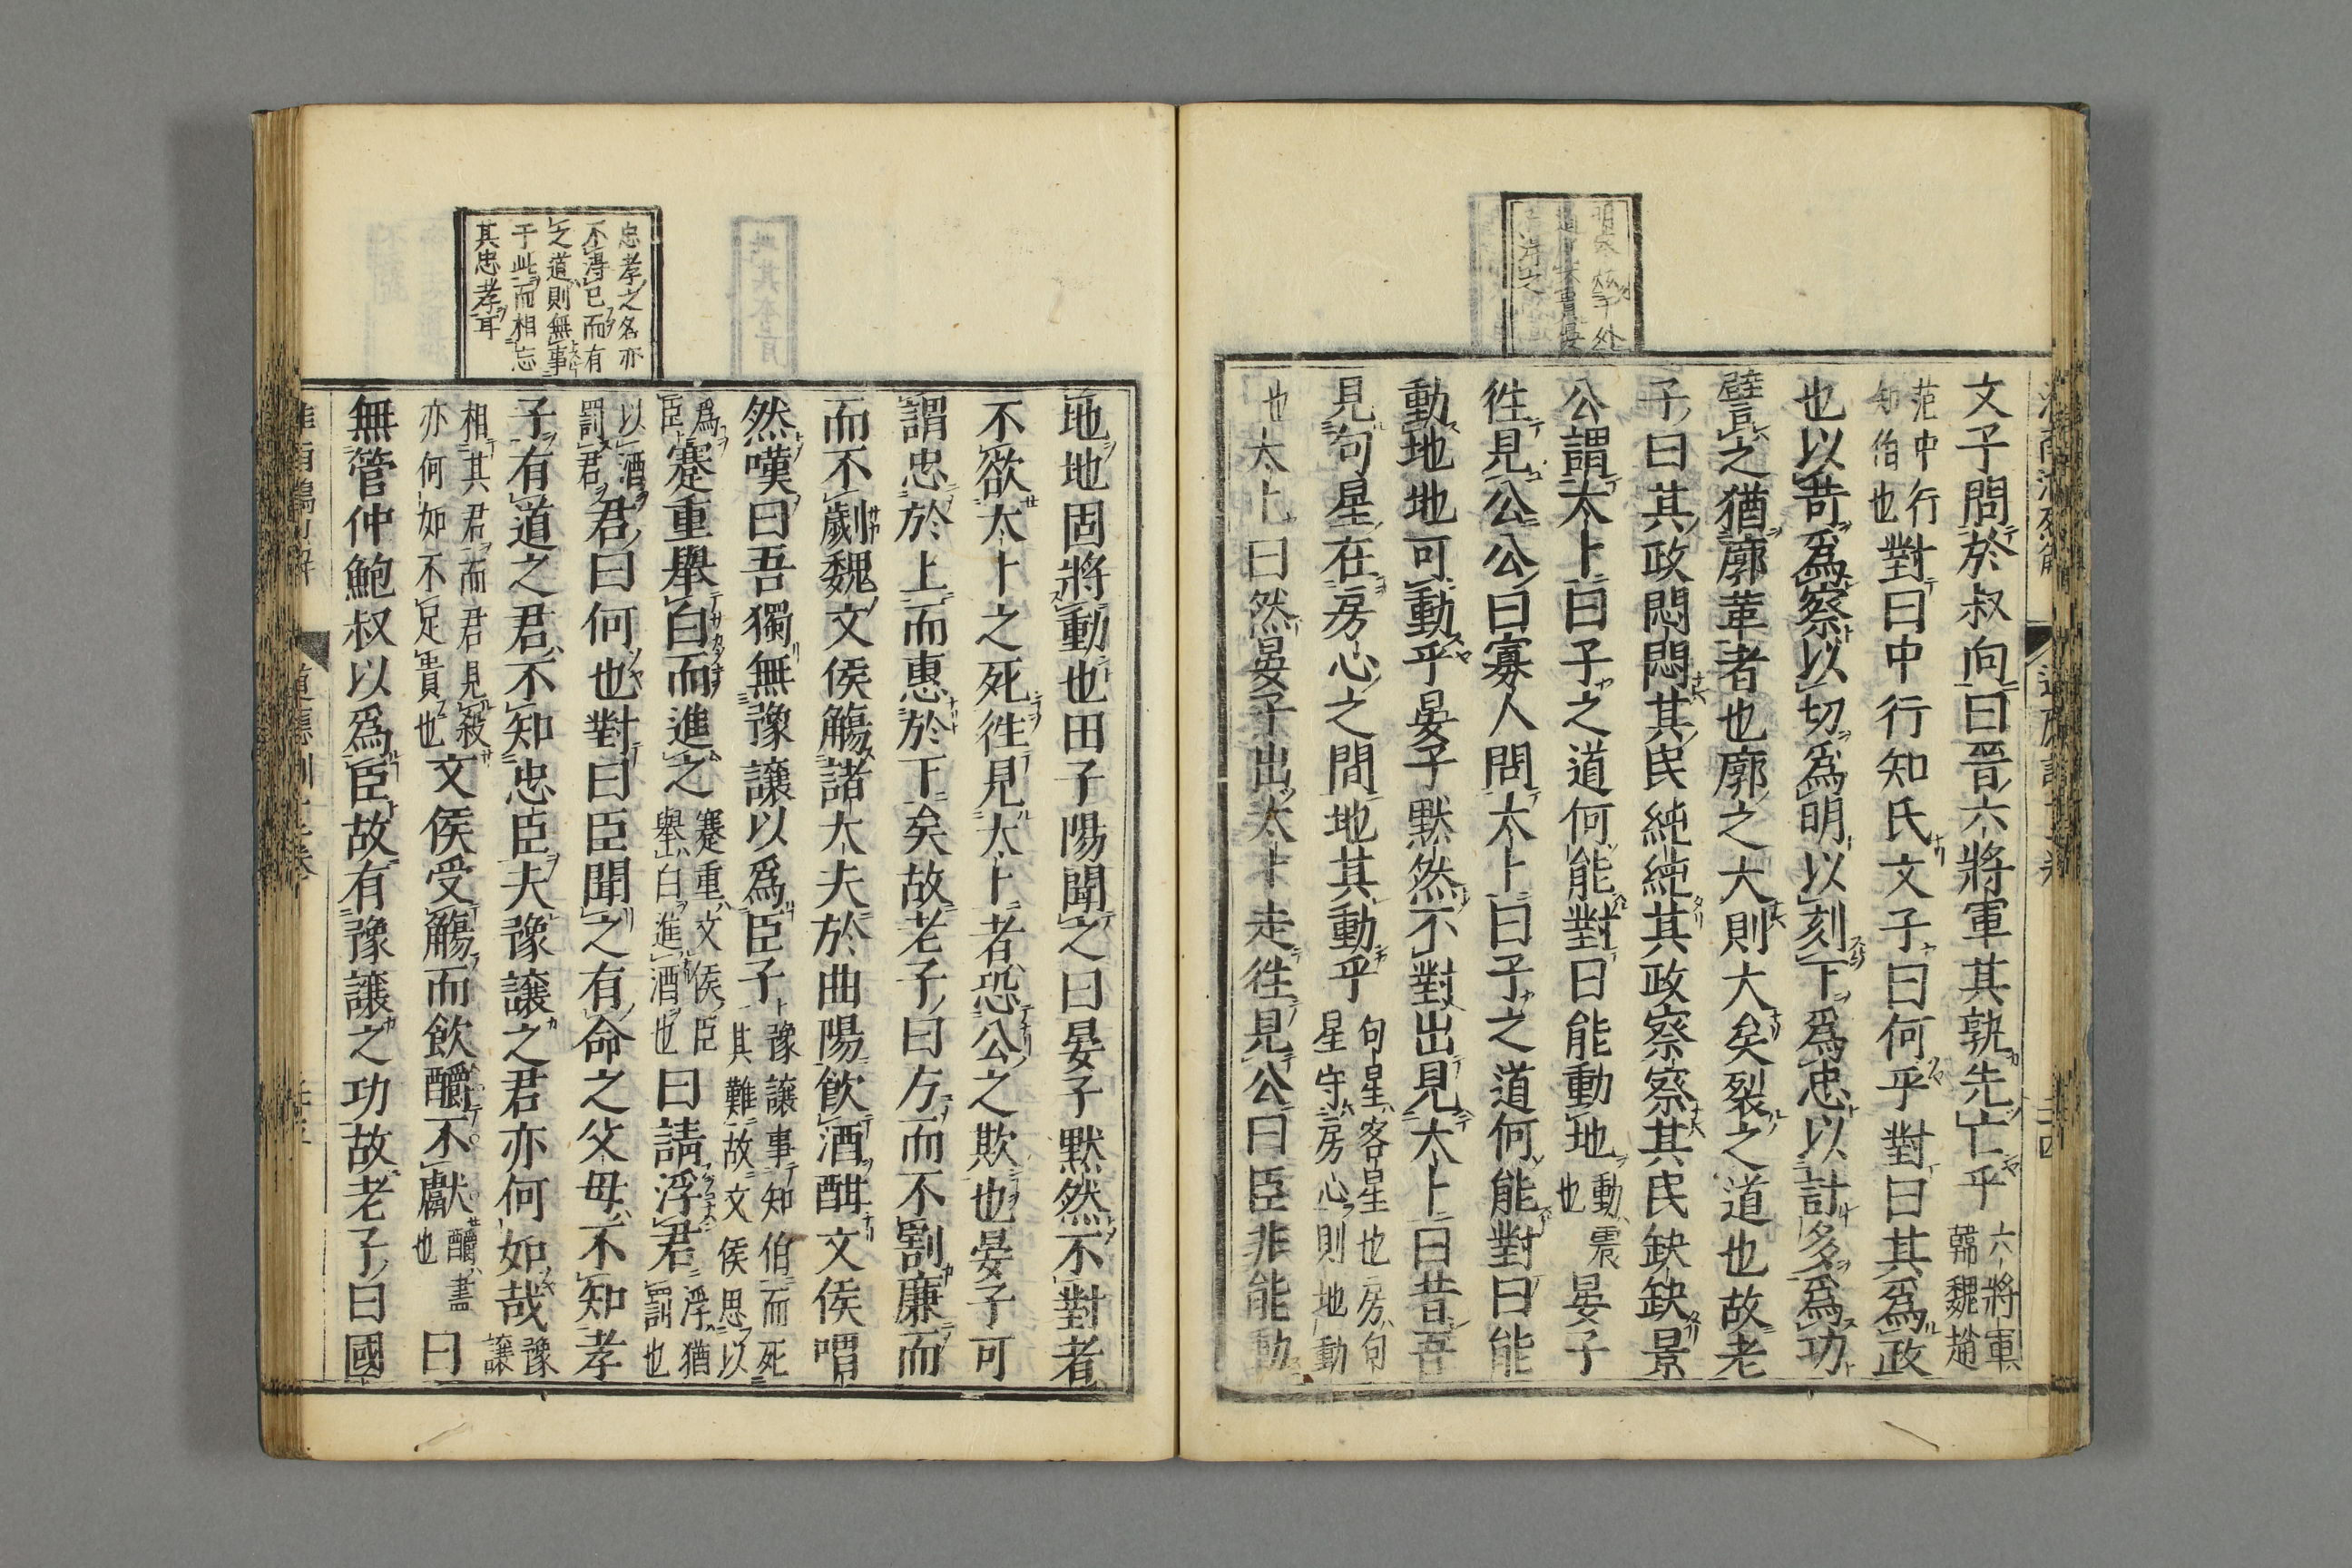 文子問於叔向曰晉六將軍其孰先亡乎六將軍韓魏趙
范中行知伯也對曰中行知氏文子曰何乎對曰其爲政
也以苛爲察以切爲明以刻下爲忠以計多爲功
譬之猶廓革者也廓之大則大矣裂之道也故老
子曰其政悶悶其民純純其政察察其民缺缺景
公謂太卜曰子之道何能對曰能動地動震也晏子
徃見公公曰寡人問太卜曰子之道何能對曰能
動地地可動乎晏子默然不對出見太卜曰昔吾
見句星在房心之間地其動乎句星客星也房句星守房心則地動
也太卜曰然晏子出太卜走徃見公曰臣非能動
忠孝之名亦
不得已而有
之道則無事
于此而相忘
其忠孝耳
地地固將動也田子陽聞之曰晏子默然不對者
不欲太卜之死徃見太卜者恐公之欺也晏子可
謂忠於上而惠於下矣故老子曰方而不割廉而
而不劌魏文侯觴諸大夫於曲陽飲酒酣文侯喟
然嘆曰吾獨無豫讓以爲臣子豫讓事知伯而死其難故文侯思以
爲臣蹇重舉白而進之蹇重文侯臣舉白進酒也曰請浮君浮猶罰也
以酒罰君君曰何也對曰臣聞之有命之父母不知孝
子有道之君不知忠臣夫豫讓之君亦何如哉豫讓
相其君而君見殺亦何如不足貴也文侯受觴而飲釂不獻釂盡也曰
無管仲鮑叔以爲臣故有豫讓之功故老子曰國